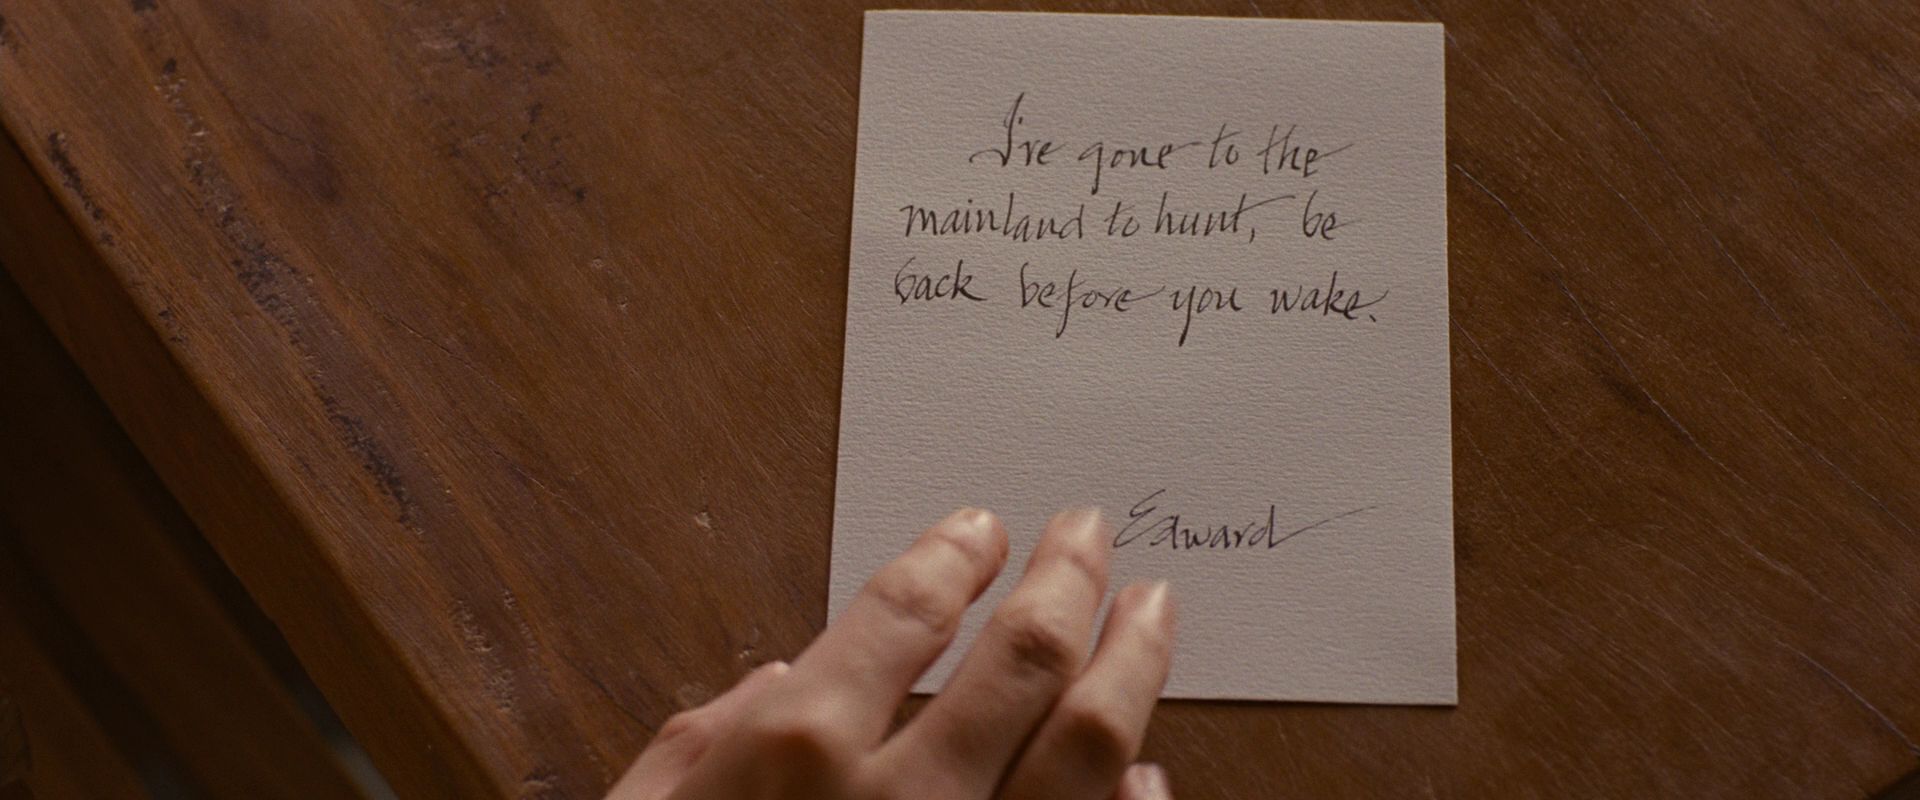 I've gone to the
mainland to hunt, be
back before you wake.
Edward